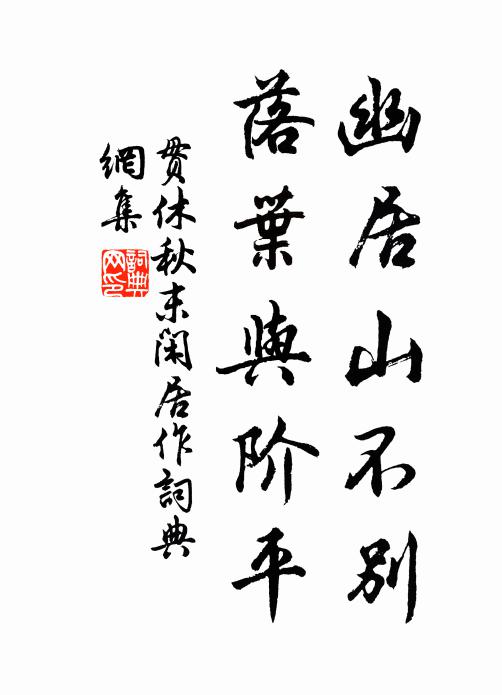 幽居山不別
落葉與阶平
貫休秋末閑居作詞典
網集
詞典
网印